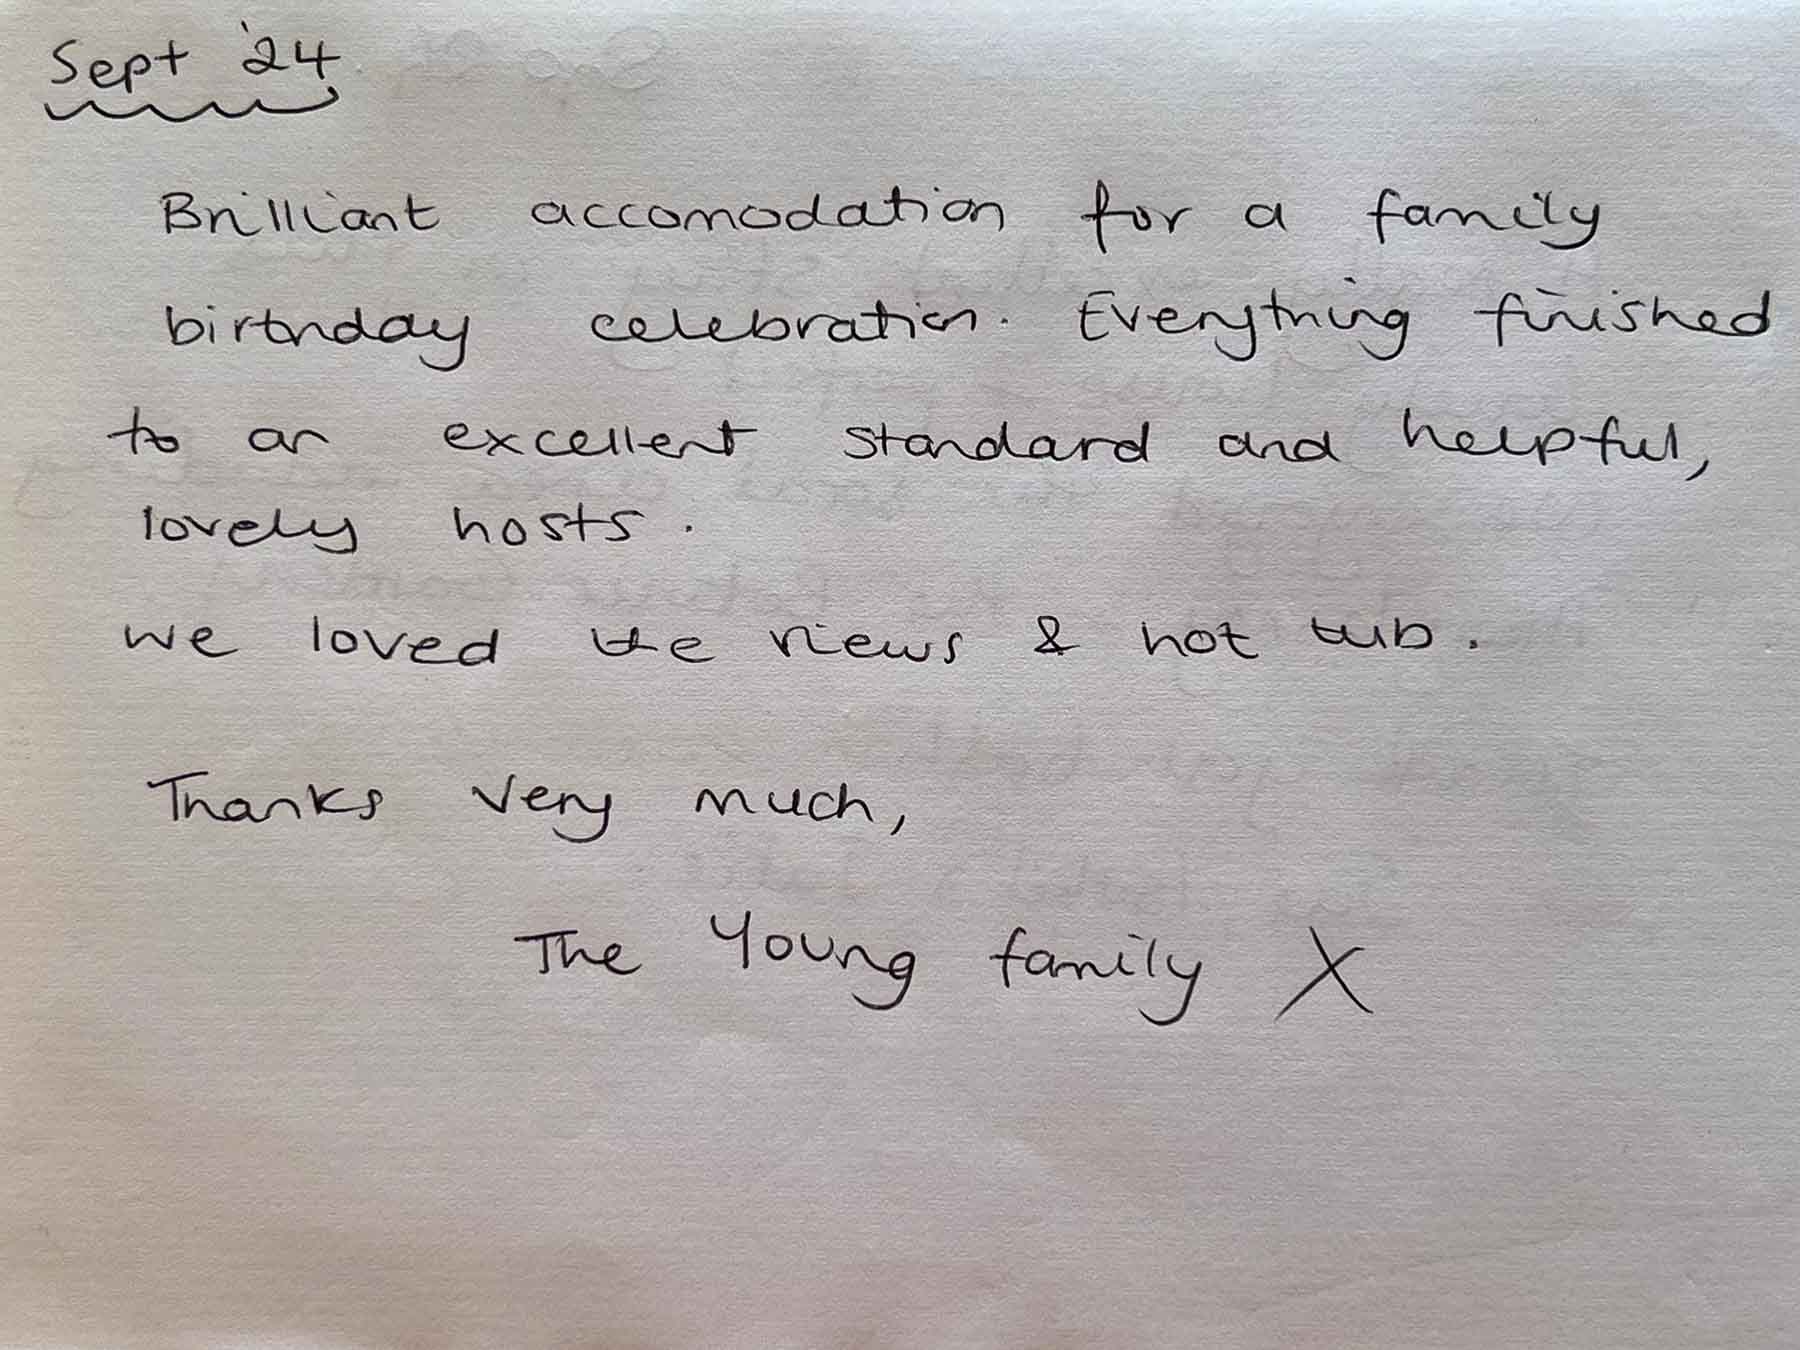 Sept '24
Brilliant accomodation for a family
birthday celebration. Everything finished
to an excellent standard and helpful,
lovely hosts.
we loved the views & hot tub.
Thanks very much,
The Young family X